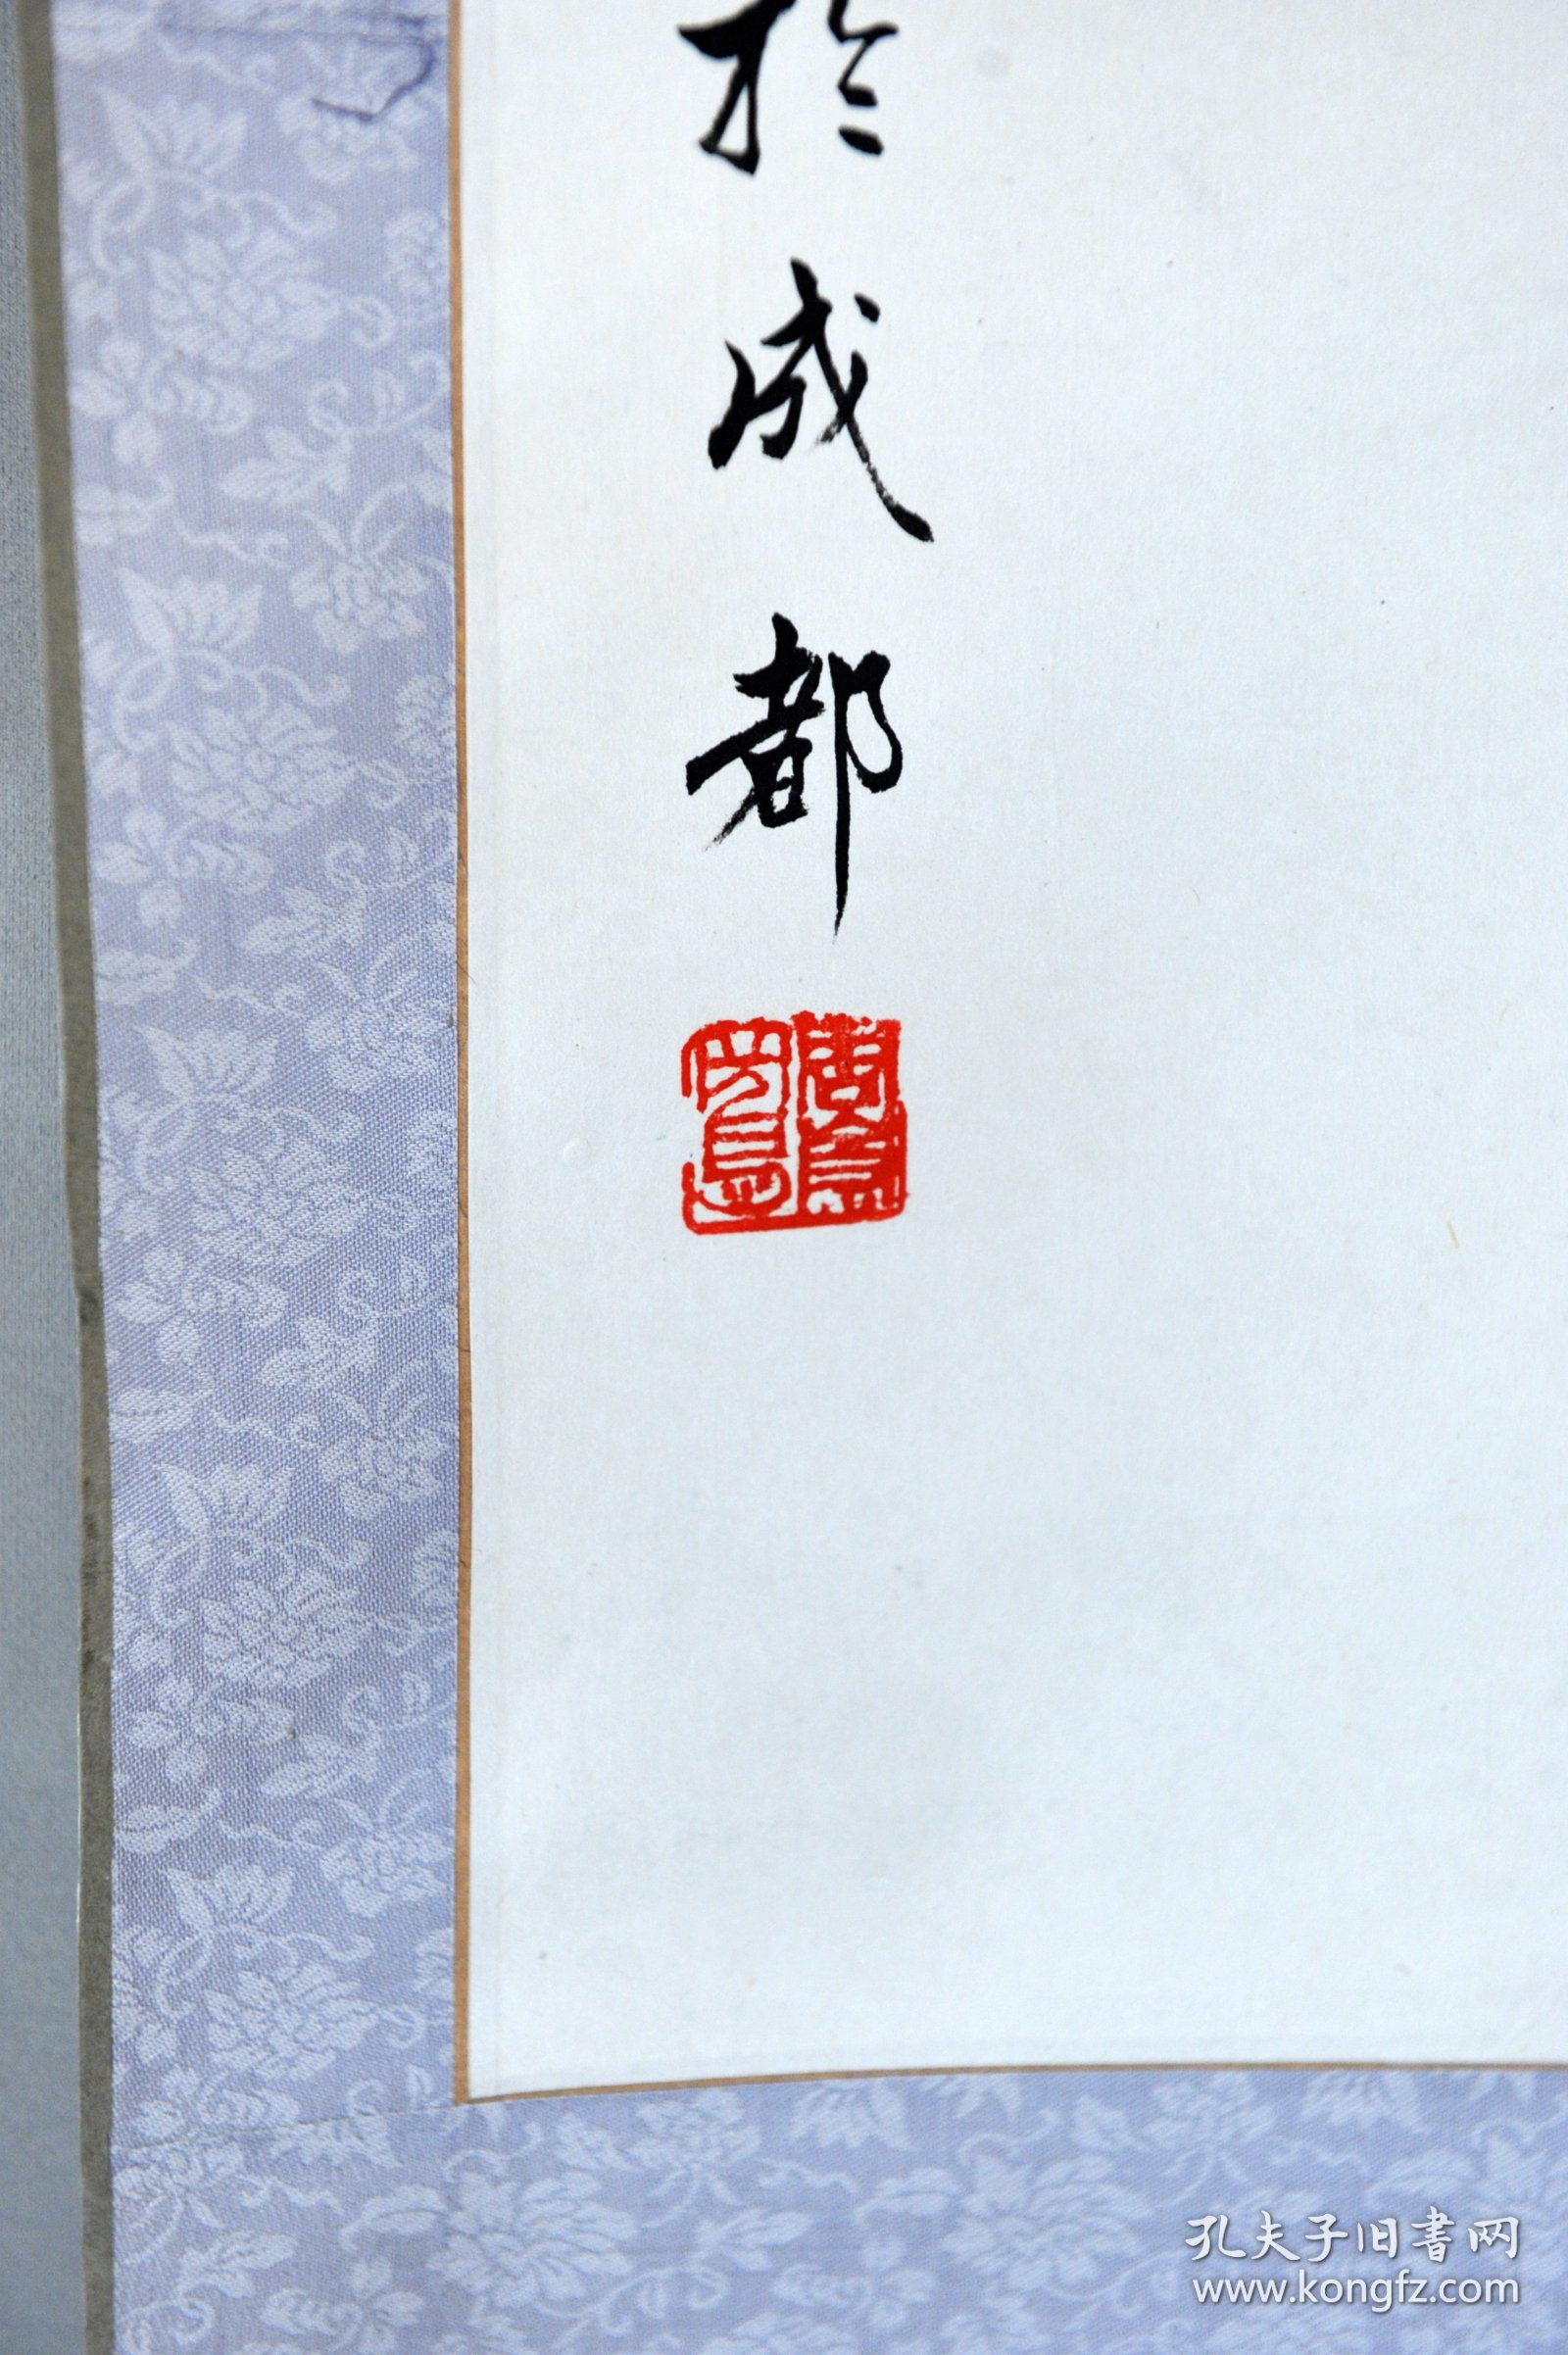 於成都
孔夫子旧書网
www.kongfz.com